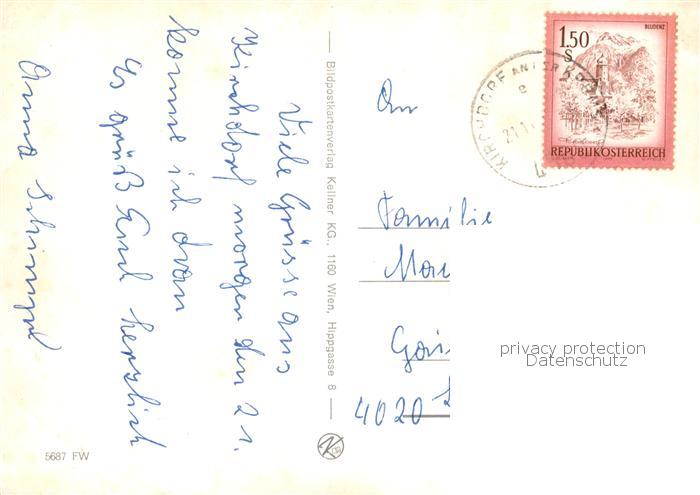 Viele Grüsse aus
Kirchdorf morgen den 21.
komme ich dran
Es grüßt Euch herzlich
Anna
Bildpostkartenverlag Kellner KG., 1160 Wien, Hippgasse 8
5687 FW
An
Familie
Mar
4020 L
KIRCHDORF AN DER KREMS
e
21.1
1.50
S
BLUDENZ
REPUBLIK ÖSTERREICH
privacy protection
Datenschutz